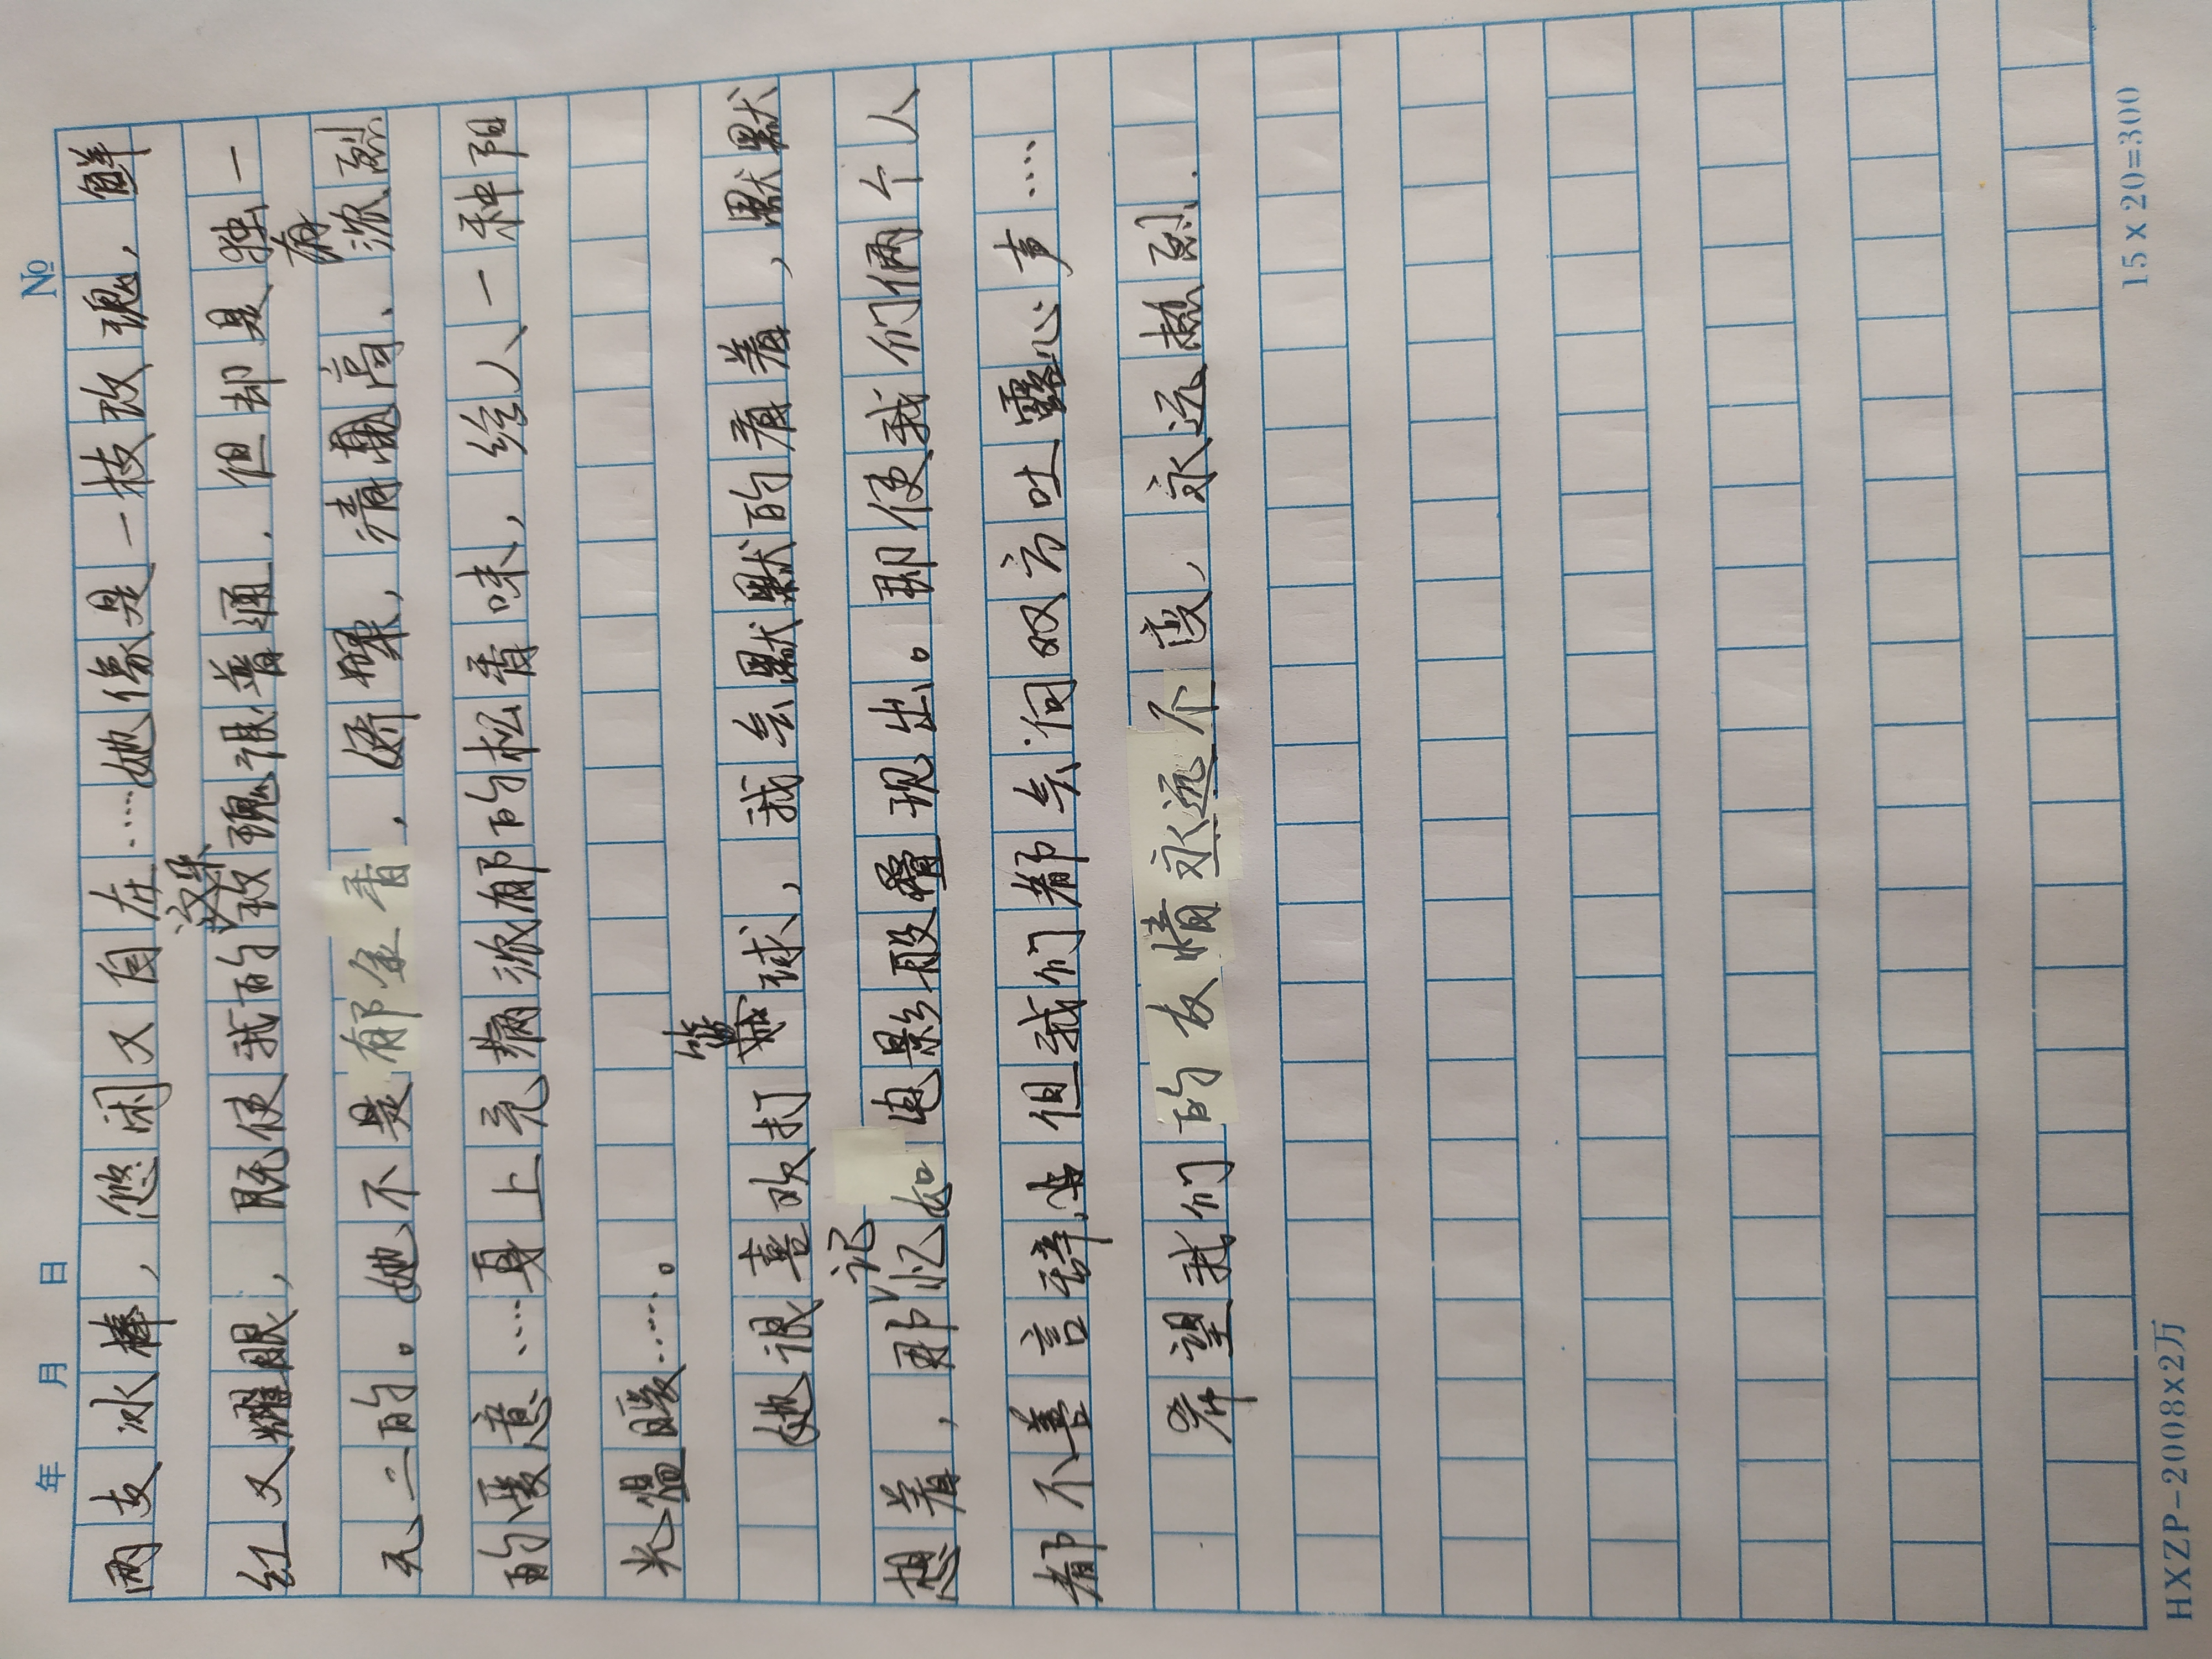 年 月 日 №
两支冰棒，悠闲又自在……她像是一枝玫瑰，鲜
红又耀眼，既使我的这朵玫瑰很普通，但却是独一
无二的。她不是郁金香，娇媚，清高、有浓烈
的暖意……身上充满浓郁的松香味，给人一种阳
光温暖……。
她很喜欢打篮球，我会默默的看着，默默
想着，那记忆如电影般叠现出。即使我们俩个人
都不善言辞，但我们都会向双方吐露心声……
希望我们的友情永远不变，永远热烈.
HXZP-2008x2万 15x20=300